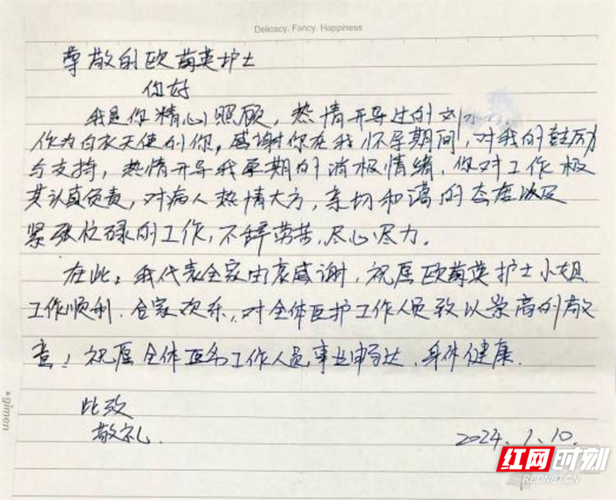 Delicacy, Fancy, Happiness
尊敬的欧菊英护士
你好
我是你精心照顾，热情开导过的刘
作为白衣天使的你，感谢你在我怀孕期间，对我的鼓励
与支持，热情开导我孕期的消极情绪，你对工作极
其认真负责，对病人热情大方，亲切和蔼的态度以及
紧张忙碌的工作，不辞劳苦，尽心尽力。
在此，我代表全家由衷感谢，祝愿欧菊英护士小姐
工作顺利，合家欢乐，对全体医护工作人员致以崇高的敬
意！祝愿全体医务工作人员事业畅达，身体健康．
此致
敬礼．
2024．1．10．
glmen
红网时刻
REDNET.CN